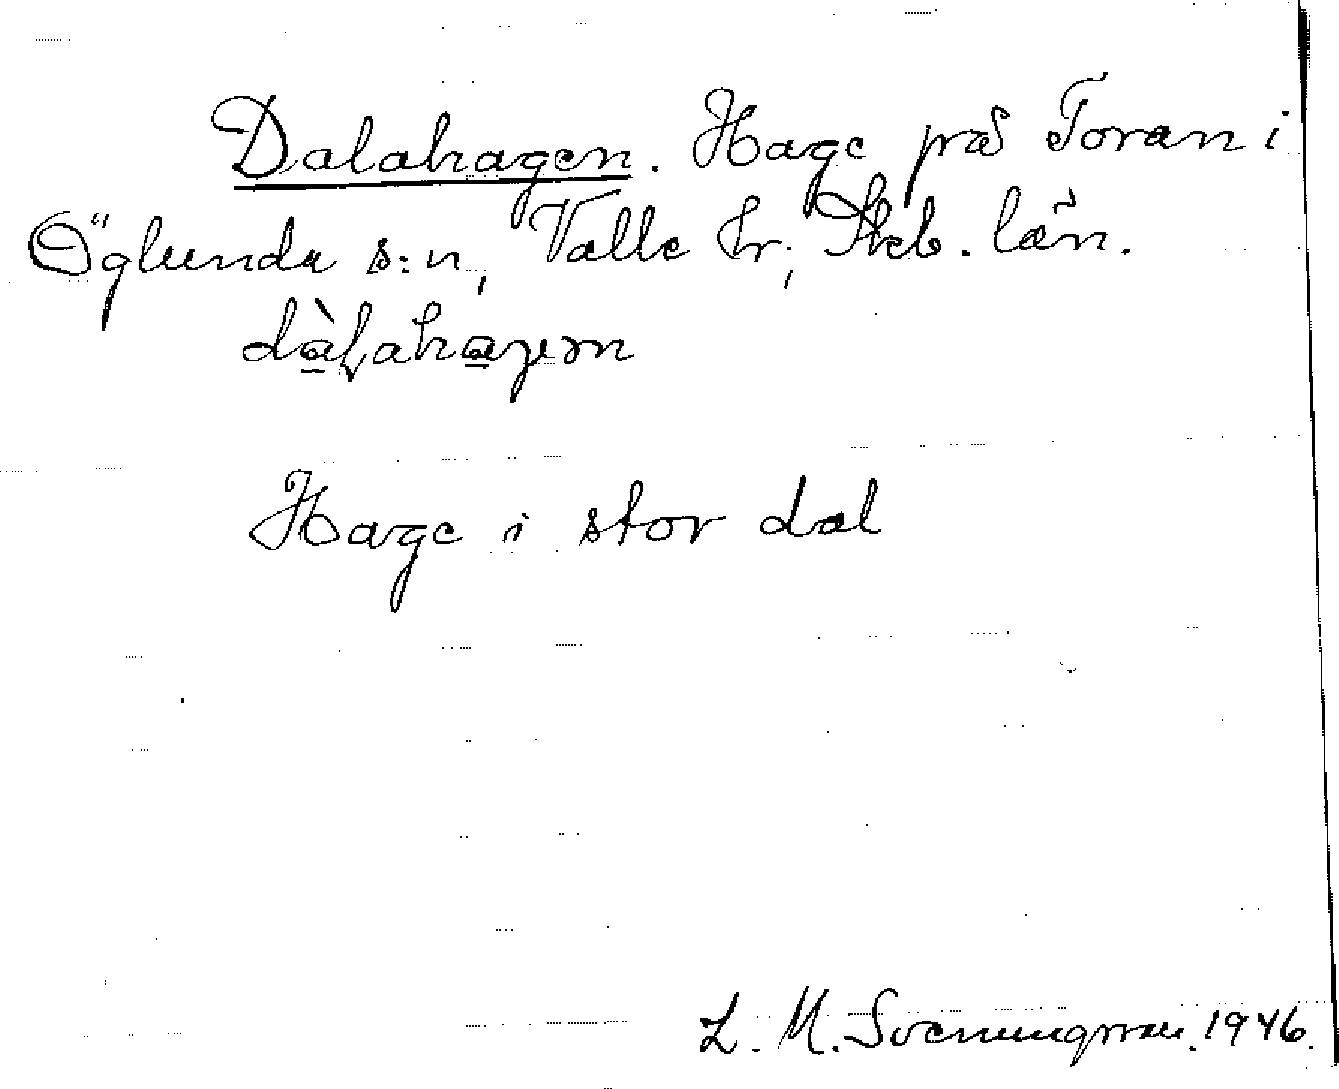 Dalahagen. Hage på Toran i
Öglunda s:n, Valle hr, Skb. län.
dàlahagen
Hage i stor dal
L. M. Svenungsson. 1946.